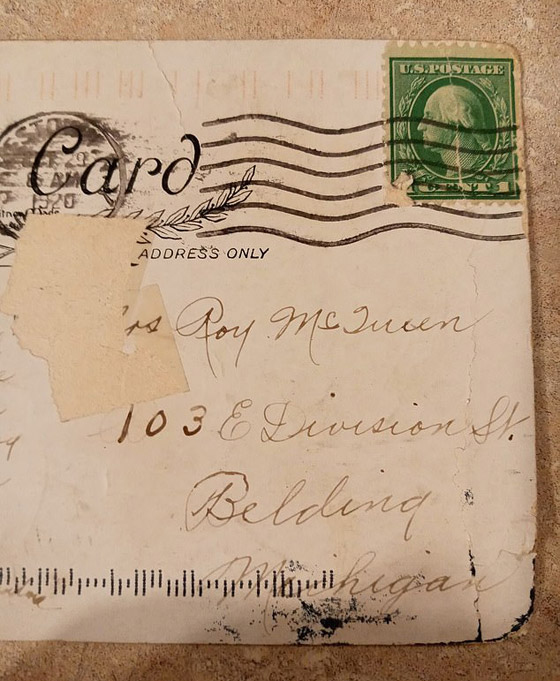 U.S.POSTAGE
Card
29
AM
1920
ADDRESS ONLY
rs Roy McQueen
103 E Division St.
Belding
Michigan